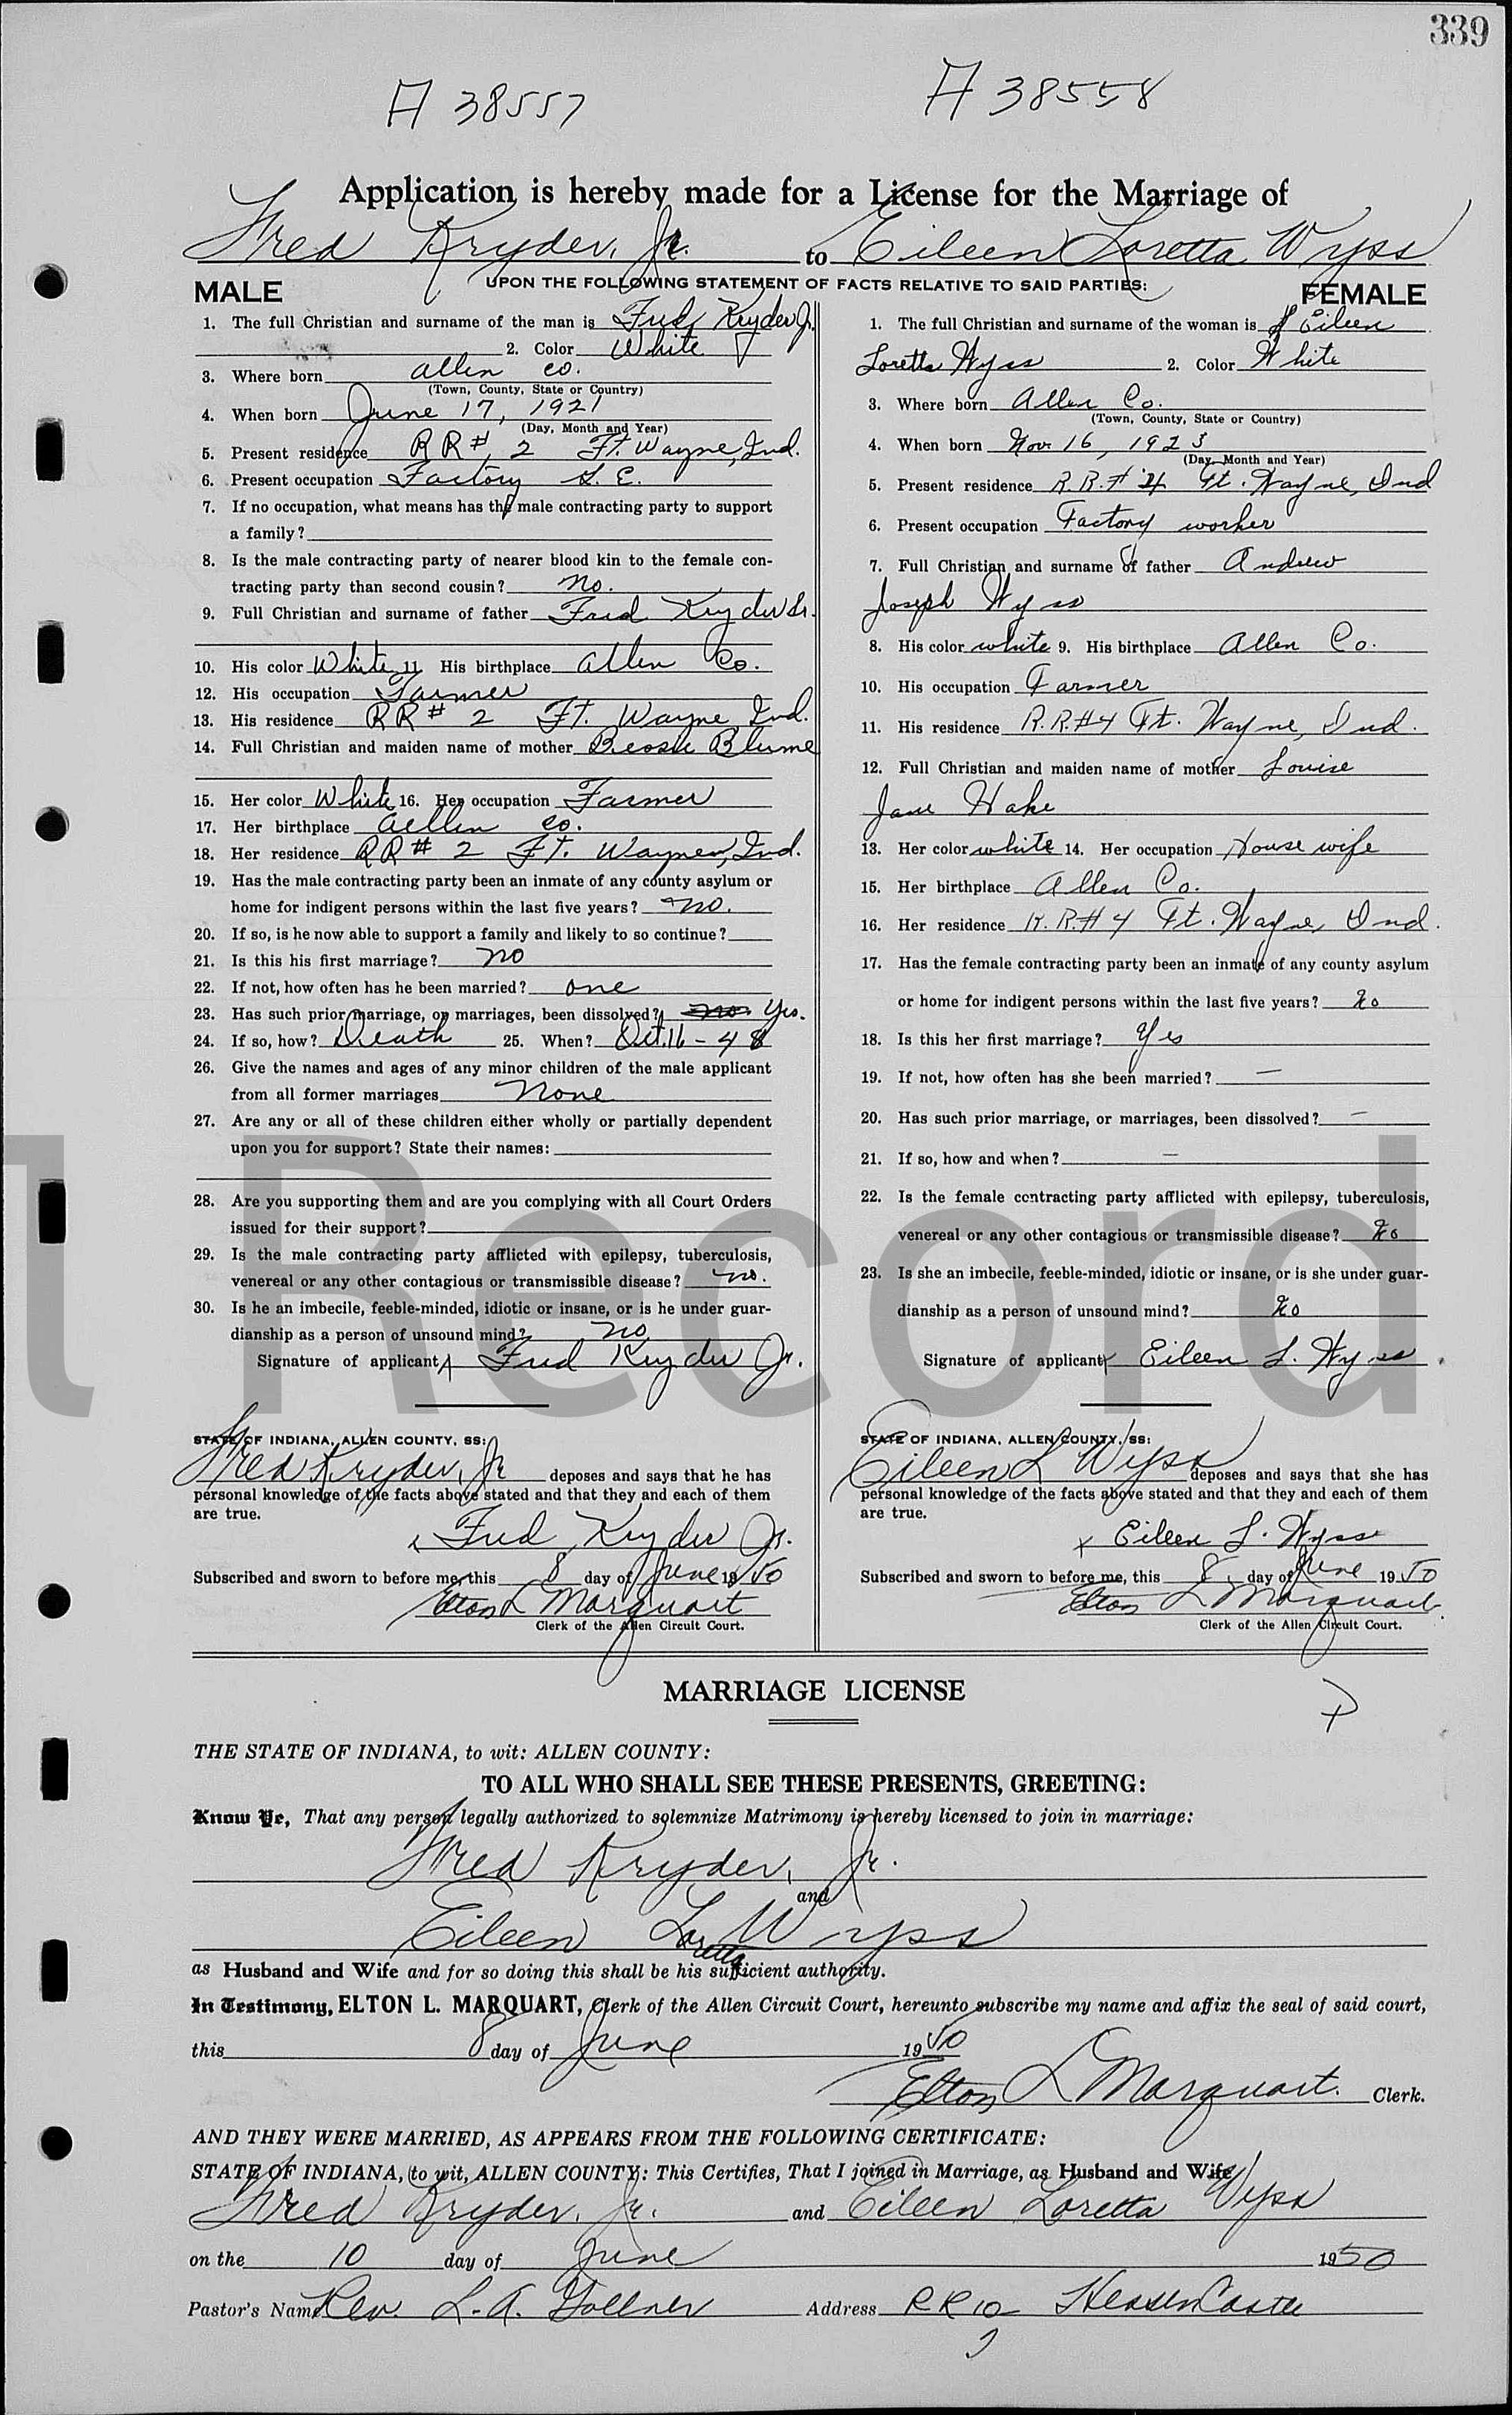 339
A 38557 A 38558
Application is hereby made for a License for the Marriage of
Fred Kryder, Jr. to Eileen Loretta Wyss
UPON THE FOLLOWING STATEMENT OF FACTS RELATIVE TO SAID PARTIES:
MALE
1. The full Christian and surname of the man is Fred Kryder Jr.
2. Color White
3. Where born Allen Co.
(Town, County, State or Country)
4. When born June 17, 1921
(Day, Month and Year)
5. Present residence RR# 2 Ft. Wayne, Ind.
6. Present occupation Factory G. E.
7. If no occupation, what means has the male contracting party to support
a family?
8. Is the male contracting party of nearer blood kin to the female con-
tracting party than second cousin? no.
9. Full Christian and surname of father Fred Kryder Sr.
10. His color White 11. His birthplace Allen Co.
12. His occupation Farmer
13. His residence RR# 2 Ft. Wayne, Ind.
14. Full Christian and maiden name of mother Bessie Blume
15. Her color White 16. Her occupation Farmer
17. Her birthplace Allen Co.
18. Her residence RR# 2 Ft. Wayne, Ind.
19. Has the male contracting party been an inmate of any county asylum or
home for indigent persons within the last five years? no.
20. If so, is he now able to support a family and likely to so continue?
21. Is this his first marriage? no
22. If not, how often has he been married? one
23. Has such prior marriage, or marriages, been dissolved? no. Yes.
24. If so, how? Death 25. When? Oct. 16 - 48
26. Give the names and ages of any minor children of the male applicant
from all former marriages None
27. Are any or all of these children either wholly or partially dependent
upon you for support? State their names:
28. Are you supporting them and are you complying with all Court Orders
issued for their support?
29. Is the male contracting party afflicted with epilepsy, tuberculosis,
venereal or any other contagious or transmissible disease? no.
30. Is he an imbecile, feeble-minded, idiotic or insane, or is he under guar-
dianship as a person of unsound mind? no
Signature of applicant Fred Kryder Jr.
STATE OF INDIANA, ALLEN COUNTY, SS:
Fred Kryder, Jr deposes and says that he has
personal knowledge of the facts above stated and that they and each of them
are true.
x Fred Kryder Jr.
Subscribed and sworn to before me, this 8 day of June 1950
Elton L Marquart
Clerk of the Allen Circuit Court.
FEMALE
1. The full Christian and surname of the woman is Eileen
Loretta Wyss 2. Color White
3. Where born Allen Co.
(Town, County, State or Country)
4. When born Nov 16, 1923
(Day, Month and Year)
5. Present residence R.R.# 4 Ft. Wayne, Ind
6. Present occupation Factory worker
7. Full Christian and surname of father Andrew
Joseph Wyss
8. His color white 9. His birthplace Allen Co.
10. His occupation Farmer
11. His residence R.R.#4 Ft. Wayne, Ind.
12. Full Christian and maiden name of mother Louise
Jane Hake
13. Her color white 14. Her occupation House wife
15. Her birthplace Allen Co.
16. Her residence R.R.#4 Ft. Wayne, Ind.
17. Has the female contracting party been an inmate of any county asylum
or home for indigent persons within the last five years? No
18. Is this her first marriage? Yes
19. If not, how often has she been married? —
20. Has such prior marriage, or marriages, been dissolved? —
21. If so, how and when? —
22. Is the female contracting party afflicted with epilepsy, tuberculosis,
venereal or any other contagious or transmissible disease? No
23. Is she an imbecile, feeble-minded, idiotic or insane, or is she under guar-
dianship as a person of unsound mind? No
Signature of applicant Eileen L. Wyss
STATE OF INDIANA, ALLEN COUNTY, SS:
Eileen L Wyss deposes and says that she has
personal knowledge of the facts above stated and that they and each of them
are true.
x Eileen L. Wyss
Subscribed and sworn to before me, this 8 day of June 1950
Elton L Marquart
Clerk of the Allen Circuit Court.
l Record
MARRIAGE LICENSE
THE STATE OF INDIANA, to wit: ALLEN COUNTY:
TO ALL WHO SHALL SEE THESE PRESENTS, GREETING:
Know Ye, That any person legally authorized to solemnize Matrimony is hereby licensed to join in marriage:
Fred Kryder, Jr.
and
Eileen Loretta Wyss
as Husband and Wife and for so doing this shall be his sufficient authority.
In Testimony, ELTON L. MARQUART, Clerk of the Allen Circuit Court, hereunto subscribe my name and affix the seal of said court,
this 8 day of June 1950
Elton L Marquart. Clerk.
AND THEY WERE MARRIED, AS APPEARS FROM THE FOLLOWING CERTIFICATE:
STATE OF INDIANA, to wit, ALLEN COUNTY: This Certifies, That I joined in Marriage, as Husband and Wife
Fred Kryder, Jr. and Eileen Loretta Wyss
on the 10 day of June 1950
Pastor's Name Rev. L. A. Address RR 10 Hessen Castle